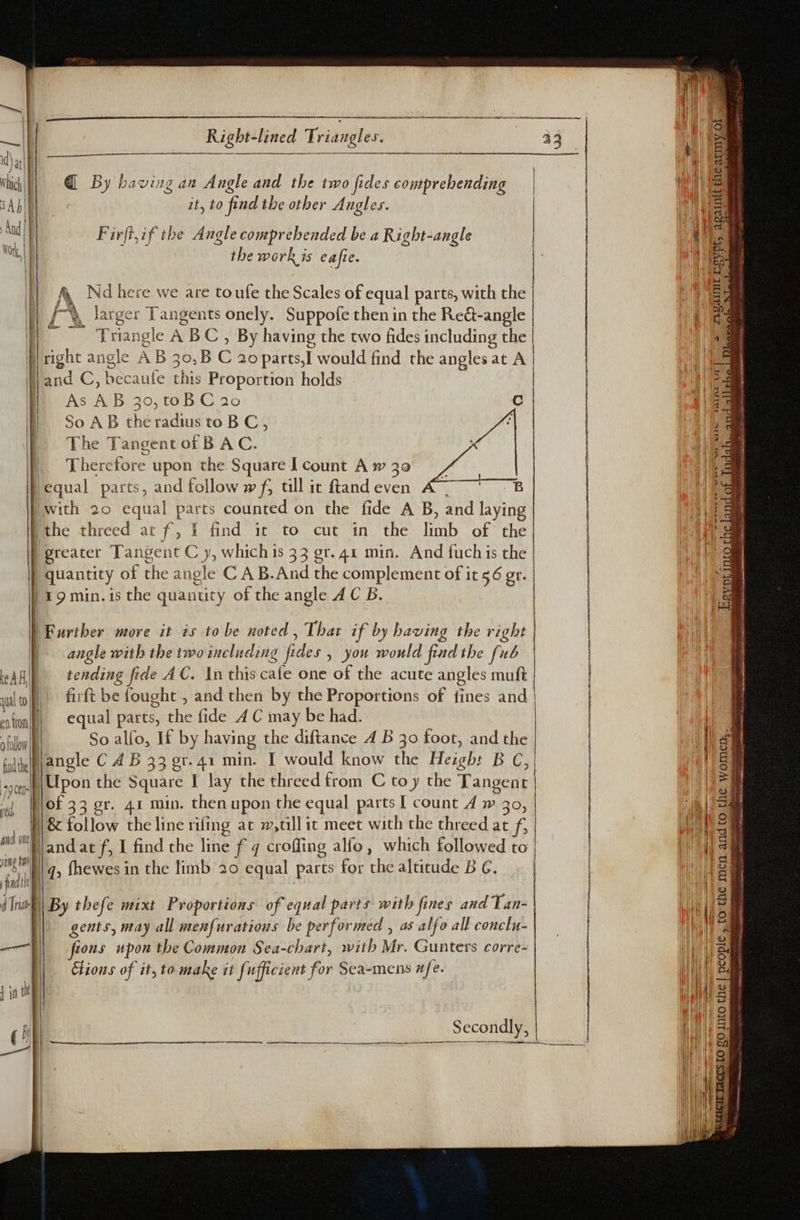 Right-lined Triangles. 33
₵ By having an Angle and the two ſides comprehending
it, to find the other Angles.
Firſt, if the Angle comprehended be a Right-angle
the work is eaſie.
ANd here we are to uſe the Scales of equal parts, with the
larger Tangents onely. Suppoſe then in the Rect-angle
Triangle A B C, By having the two ſides including the
right angle A B 30, B C 20 parts, I would find the angles at A
and C, becauſe this Proportion holds
As A B 30, to B C 20
So A B the radius to B C,
The Tangent of B A C.
Therefore upon the Square I count A w 30
equal parts, and follow w f, till it ſtand even
with 20 equal parts counted on the ſide A B, and laying
the threed at f, I find it to cut in the limb of the
greater Tangent C y, which is 33 gr. 41 min. And ſuch is the
quantity of the angle C A B. And the complement of it 56 gr.
19 min. is the quantity of the angle A C B.
C
A B
Further more it is to be noted, That if by having the right
angle with the two including ſides, you would find the ſub
tending ſide A C. In this caſe one of the acute angles muſt
firſt be ſought, and then by the Proportions of ſines and
equal parts, the ſide A C may be had.
So alſo, If by having the diſtance A B 30 foot, and the
angle C A B 33 gr. 41 min. I would know the Height B C,
Upon the Square I lay the threed from C to y the Tangent
of 33 gr. 41 min. then upon the equal parts I count A w 30,
& follow the line riſing at w, till it meet with the threed at f,
and at f, I find the line f q croſſing alſo, which followed to
q, ſhewes in the limb 20 equal parts for the altitude B C.
By theſe mixt Proportions of equal parts with ſines and Tan-
gents, may all menſurations be performed, as alſo all conclu-
ſions upon the Common Sea-chart, with Mr. Gunters corre-
ctions of it, to make it ſufficient for Sea-mens uſe.
Secondly,